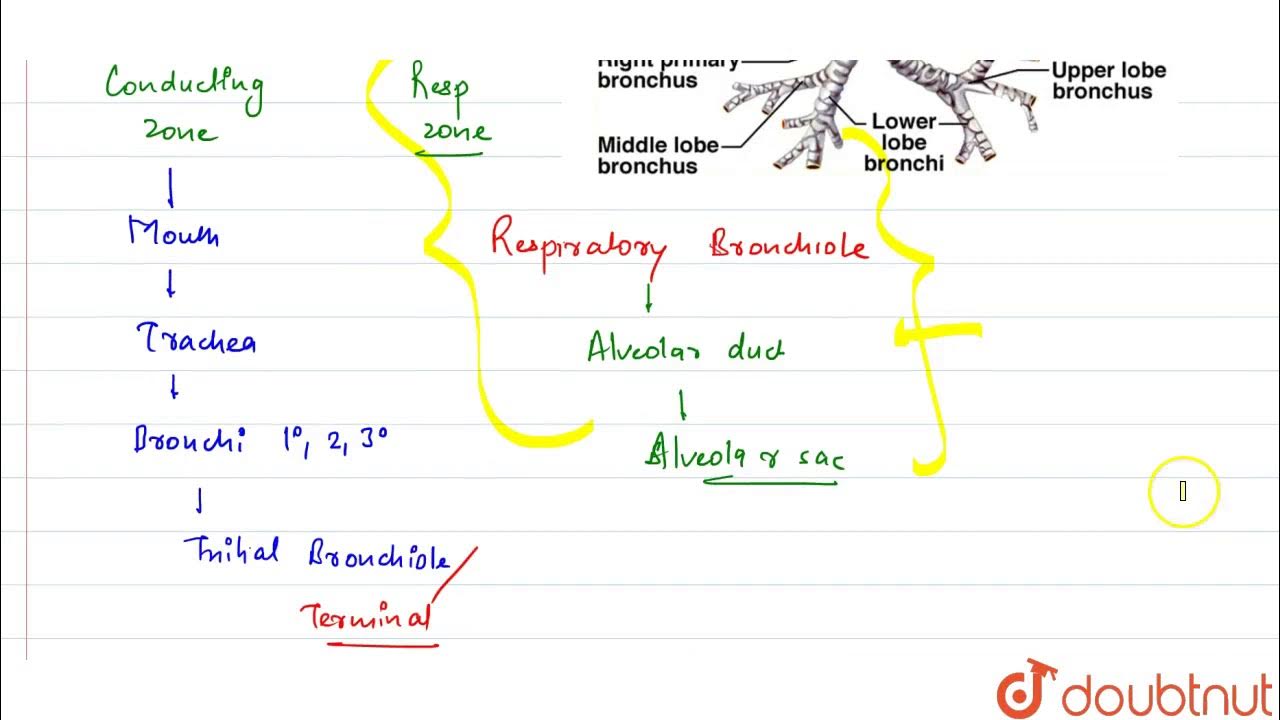 Conducting
zone
Mouth
Trachea
Bronchi 1°, 2, 3°
Initial Bronchiole
Terminal
Resp
zone
Respiratory Bronchiole
Alveolar duct
Alveolar sac
Right primary
bronchus
Middle lobe
bronchus
Lower
lobe
bronchi
Upper lobe
bronchus
doubtnut